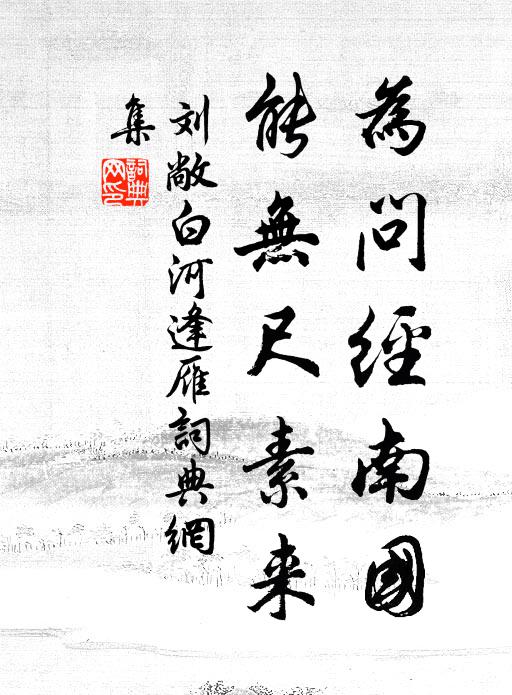 為問經南國
能無尺素来
刘敞白河逢雁詞典網
集
詞典
网印